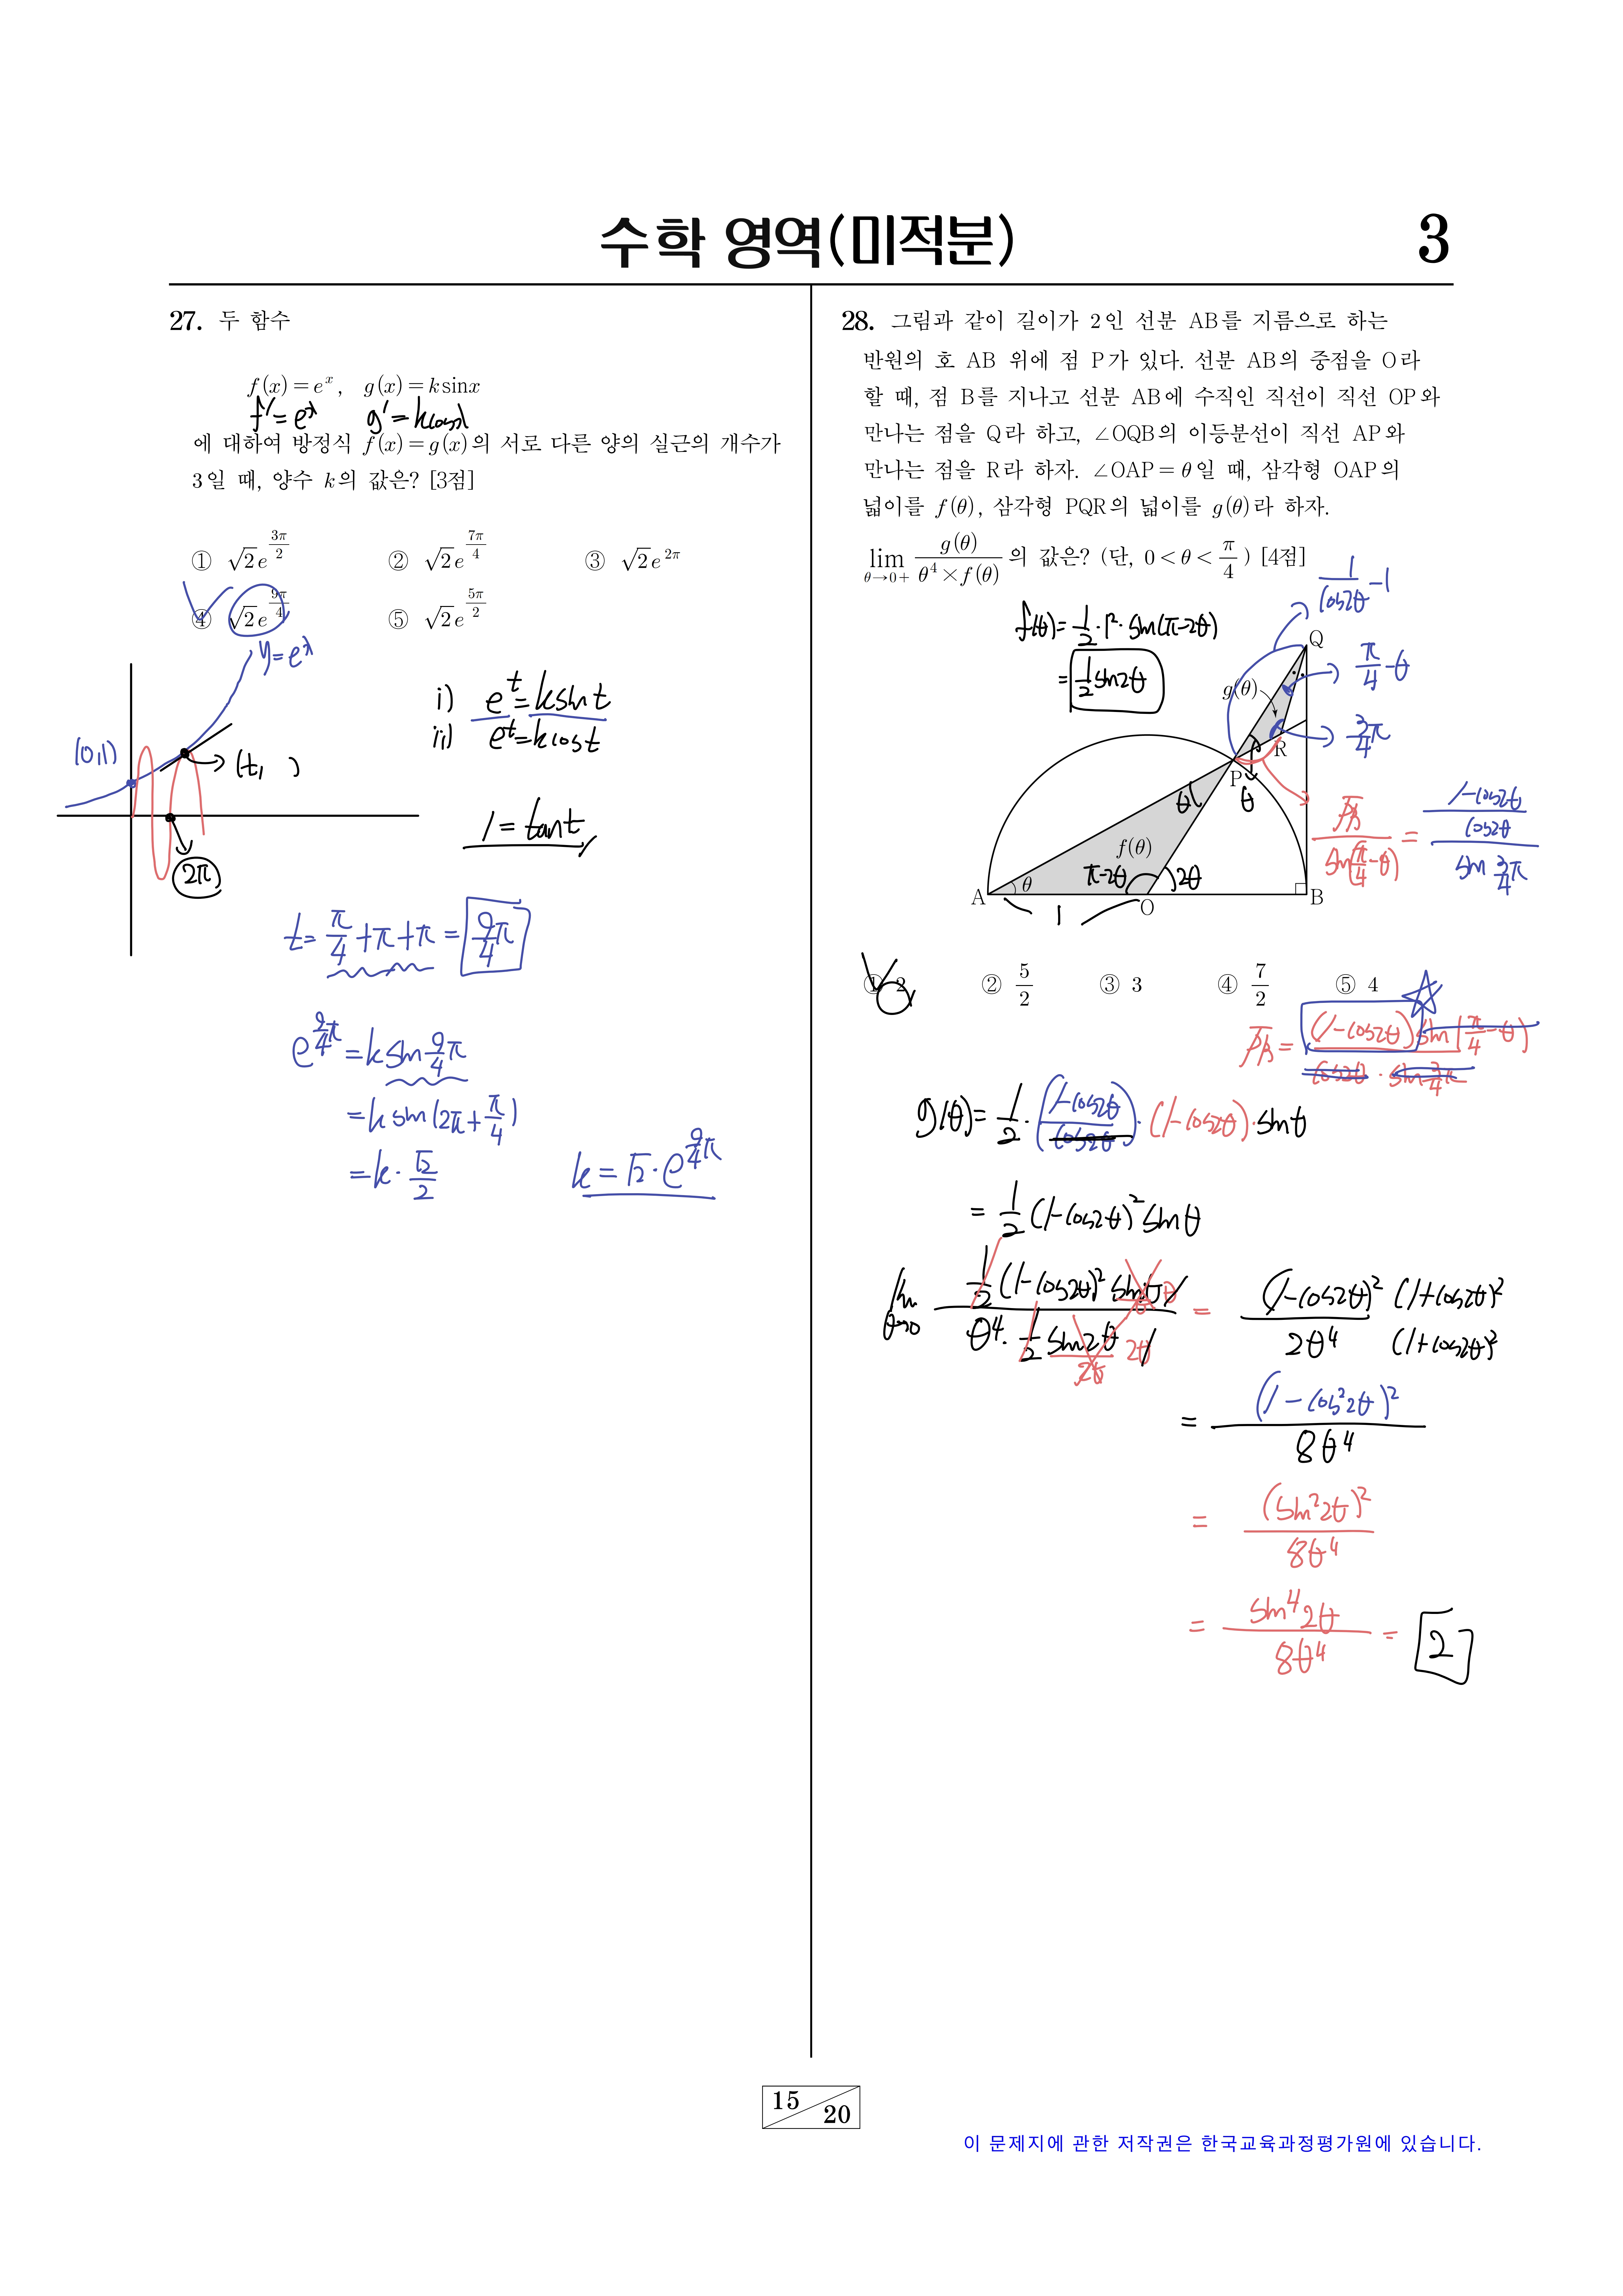 수학 영역(미적분)
3
27. 두 함수
f(x)=e^x, g(x)=k sin x
f'=e^x g'=k cos x
에 대하여 방정식 f(x)=g(x)의 서로 다른 양의 실근의 개수가
3일 때, 양수 k의 값은? [3점]
① √2 e^(3π/2) ② √2 e^(7π/4) ③ √2 e^(2π)
④ √2 e^(9π/4) ⑤ √2 e^(5π/2)
y=e^x
(0,1)
(t, )
2π
i) e^t=k sin t
ii) e^t=k cos t
1=tan t
t=π/4+π+π=9/4π
e^(9/4π)=k sin 9/4π
=k sin(2π+π/4)
=k·√2/2
k=√2·e^(9/4π)
28. 그림과 같이 길이가 2인 선분 AB를 지름으로 하는
반원의 호 AB 위에 점 P가 있다. 선분 AB의 중점을 O라
할 때, 점 B를 지나고 선분 AB에 수직인 직선이 직선 OP와
만나는 점을 Q라 하고, ∠OQB의 이등분선이 직선 AP와
만나는 점을 R라 하자. ∠OAP=θ일 때, 삼각형 OAP의
넓이를 f(θ), 삼각형 PQR의 넓이를 g(θ)라 하자.
lim θ→0+ g(θ)/(θ^4×f(θ)) 의 값은? (단, 0<θ<π/4) [4점]
f(θ)=1/2·1²·sin(π-2θ)
=1/2 sin2θ
1/cos2θ -1
Q
π/4-θ
g(θ)
3/4π
R
P
θ
θ
f(θ)
π-2θ
2θ
A
θ
O
B
1
PR/sin(π/4-θ) = ((1-cos2θ)/cos2θ)/sin 3/4π
① 2 ② 5/2 ③ 3 ④ 7/2 ⑤ 4
PR = (1-cos2θ)sin(π/4-θ)/(cos2θ·sin 3/4π)
g(θ)=1/2·((1-cos2θ)/cos2θ)·(1-cos2θ)·sinθ
=1/2(1-cos2θ)²sinθ
lim θ→0 1/2(1-cos2θ)²sinθ/(θ^4·1/2 sin2θ) = (1-cos2θ)²(1+cos2θ)²/(2θ^4(1+cos2θ)²)
θ θ
2θ 2θ
=(1-cos²2θ)²/8θ^4
=(sin²2θ)²/8θ^4
=sin^4 2θ/8θ^4=2
15
20
이 문제지에 관한 저작권은 한국교육과정평가원에 있습니다.